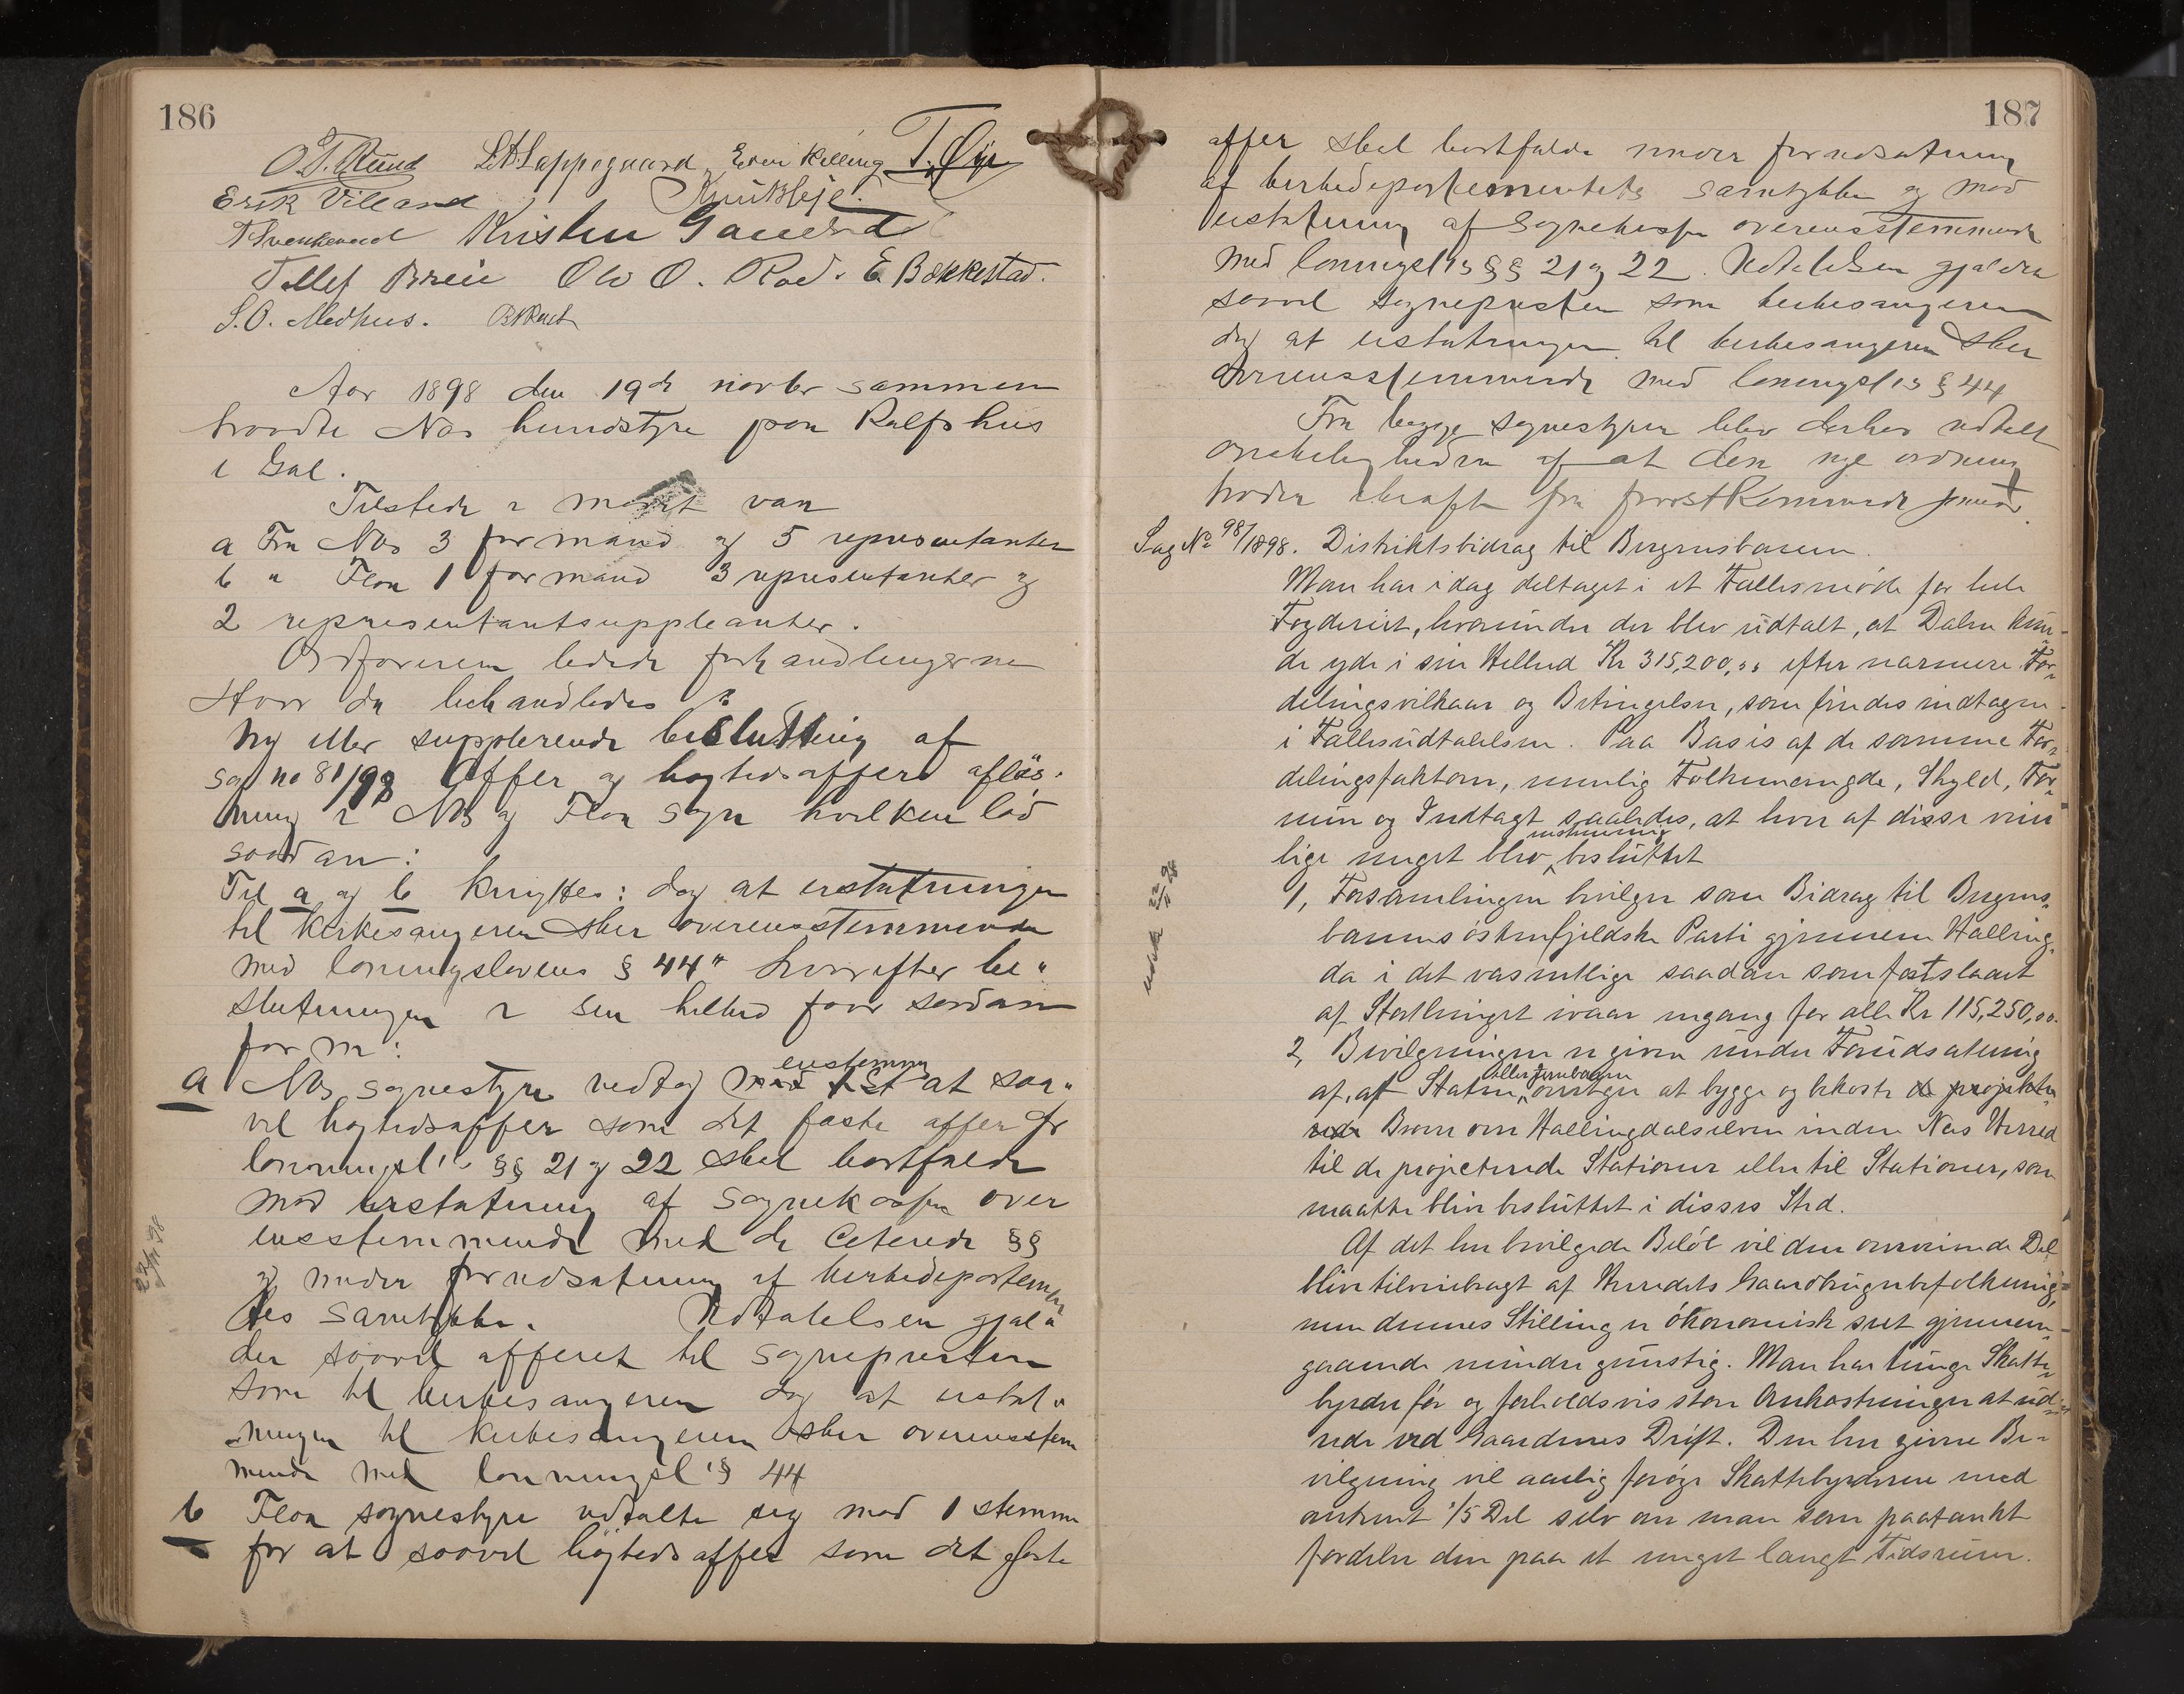 186
O. T. Ruud L. A. Lappegaard Even Kolling T. Øye
Erik Villand Knut Sleje.
T Svenkerud Kristen Gandrud
Tollef Breie Ole O. Roe. E Bækkestad.
S. O. Medhus.
Aar 1898 den 19de novbr sammen
traadte Næs herredstyre paa Rolfshus
i Gul.
Tilstede i mødet var
a Fra Næs 3 formænd og 5 representanter
b " Flaa 1 formand 3 representanter og
2 representantsuppleanter.
Ordføreren ledede forhandlingerne
Hvor da behandledes
Ny eller supplerende beslutting af
sag no 81/98 Offer og høgtidsoffers afløs-
ning i Næs og Flaa sogn hvilken lød
saadan:
Til a og b knyttes: dog at erstatningen
til kirkesangeren sker overensstemmende
med lønningslovens § 44" hvorefter be-
slutningen i sin helhed faar saadan
form:
a Næs sognestyre vedtog enstemmig at saa-
vel høgtidsoffer som det faste offer efr
lønningsl's §§ 21 og 22 skal bortfalde
mod erstatning af sognekassen over
ensstemmende med de citerede §§
og under forudsætning af kirkedepartemen
tes samtykke. Udtalelsen gjæl-
der saavel offeret til sognepresten
som til kirkesangeren dog at erstat-
ningen til kirkesangeren sker overensstem
mende med lønningsl's § 44
b Flaa sognestyre udtalte sig mod 1 stemme
for at saavel høgtidsoffer som det faste
22/11 98
187
offer skal bortfalde under forudsætning
af kirkedepartementets samtykke og mod
erstatning af sognekassen overensstemmende
med lønningsl's §§ 21 og 22. Udtalelsen gjælder
saavel sognepresten som kirkesangeren
dog at erstatningen til kirkesangeren sker
overensstemmende med lønningsl's § 44
Fra begge sognestyrer blev derhos udtalt
ønskeligheden af at den nye ordning
træder i kraft fra førstkommende januar.
Sag No 98/1898. Distriktsbidrag til Bergensbanen.
Man har idag deltaget i et Fællesmøde for hele
Fogderiet, hvorunder der blev udtalt, at Dalen kun-
de yde i sin Helhed Kr 315,200,00 efter nærmere For-
delingsvilkaar og Betingelser, som findes indtagen
i Fællesudtalelsen. Paa Basis af de samme For-
delingsfaktorer, nemlig Folkemængde, Skyld, For-
mue og Indtægt saaledes, at hver af disse veier
lige meget blev enstemmig besluttet
1, Forsamlingen bevilger som Bidrag til Bergens-
banens østenfjeldske Parti gjennem Halling-
dal i det væsentlige saadan som fastslaaet
af Storthinget ivaar engang for alle Kr 115,250,00.
2, Bevilgningen er given under Forudsætning
af, at Staten eller Jernbanen overtager at bygge og bekoste de projekte-
rede Broer over Hallingdalselven inden Næs Herred
til de projecterede Stationer eller til Stationer, som
maatte blive besluttet i disses Sted.
Af det her bevilgede Beløb vil den overveiende Del
blive tilveiebragt af Herredets Gaardbrugerbefolkning,
men dennes Stilling er økonomisk seet gjennem-
gaaende mindre gunstig. Man har tunge Skatte-
byrder før og forholdsvis store Omkostninger at ud-
rede ved Gaardenes Drift. Den her givne Be-
vilgning vil aarlig forøge Skattebyrderne med
omtrent 1/5 Del selv om man som paatænkt
fordeler den paa et meget langt Tidsrum.